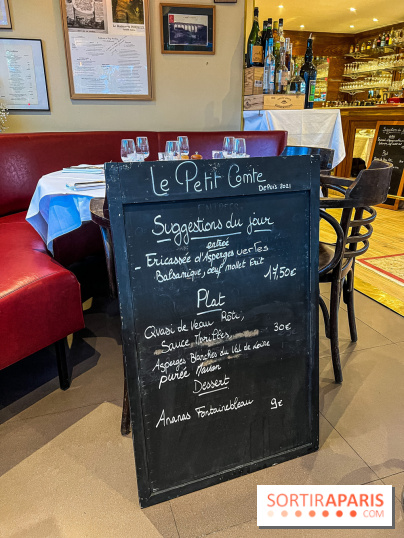 Le Petit Comte
Depuis 2021
Suggestions du jour
entrée
- Fricassée d'Asperges vertes
Balsamique, œuf mollet frit 17,50€
Plat
Quasi de Veau Rôti,
Sauce Morilles 30€
Asperges Blanches du Val de Loire
purée Maison
Dessert
Ananas Fontainebleau 9€
SORTIRAPARIS
.COM